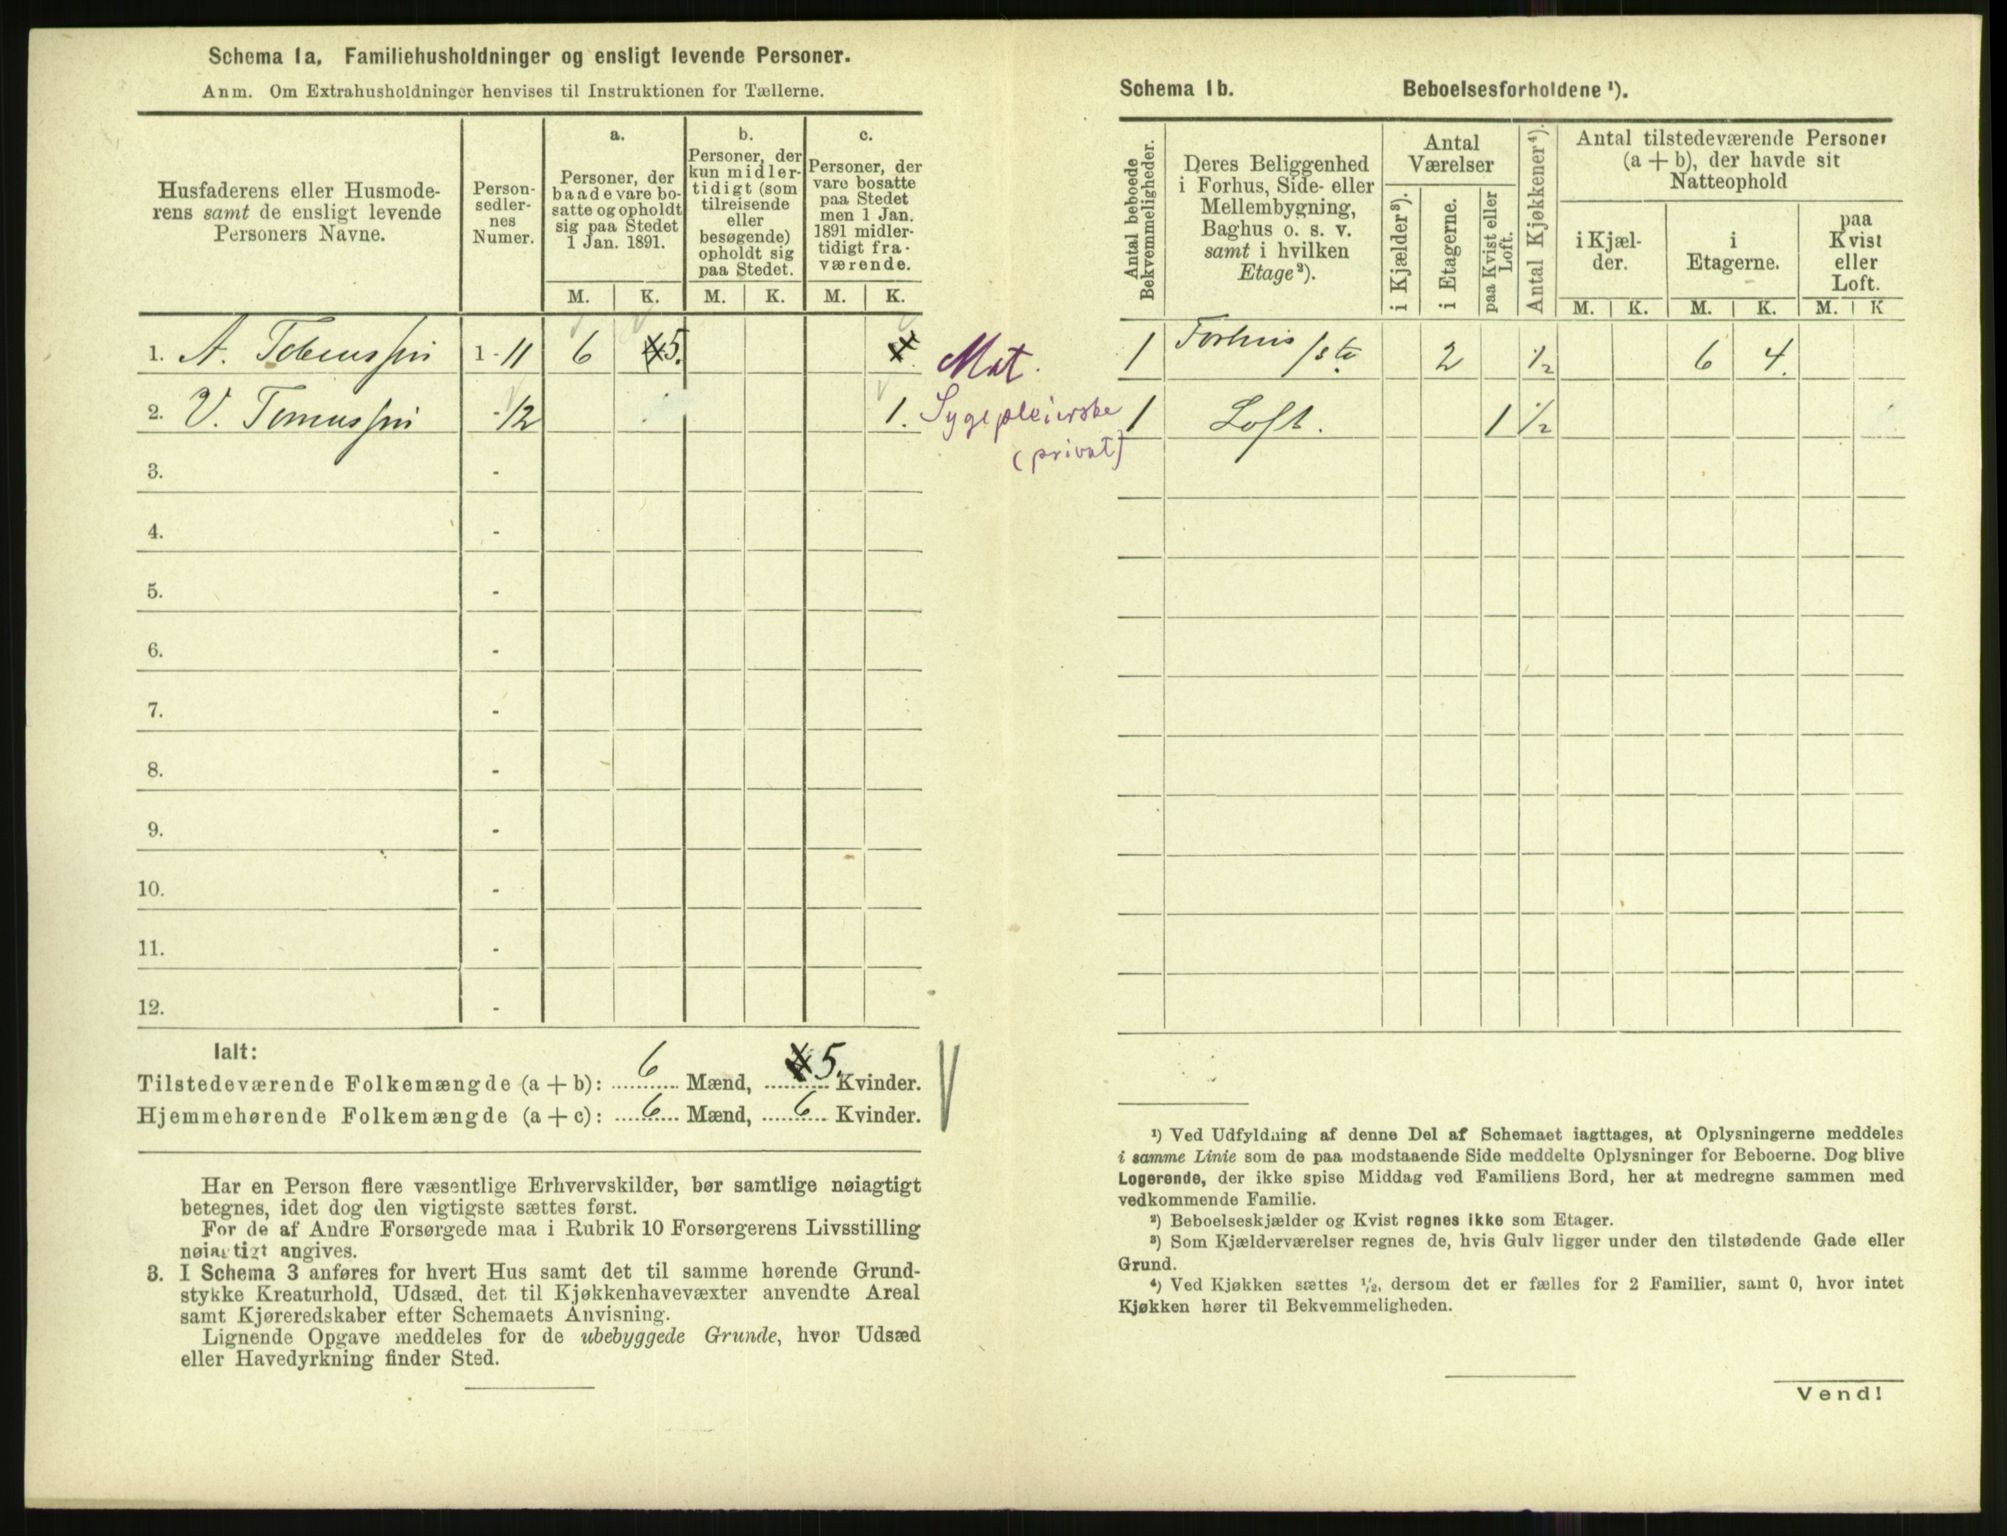 Schema 1a. Familiehusholdninger og ensligt levende Personer.
Anm. Om Extrahusholdninger henvises til Instruktionen for Tællerne.
Husfaderens eller Husmode-
rens samt de ensligt levende
Personers Navne.
Person-
sedler-
nes
Numer.
a.
Personer, der
baade vare bo-
satte og opholdt
sig paa Stedet
1 Jan. 1891.
b.
Personer, der
kun midler-
tidigt (som
tilreisende
eller
besøgende)
opholdt sig
paa Stedet.
c.
Personer, der
vare bosatte
paa Stedet
men 1 Jan.
1891 midler-
tidigt fra-
værende.
M. K. M. K. M. K.
1. A. 1 - 11 6 5.
2. V. - 12 1.
3. -
4. -
5. -
6. -
7. -
8. -
9. -
10. -
11. -
12. -
Mat.
Sygepleierske
(privat)
Ialt:
Tilstedeværende Folkemængde (a + b): 6 Mænd, 5. Kvinder.
Hjemmehørende Folkemængde (a + c): 6 Mænd, 6 Kvinder.
Har en Person flere væsentlige Erhvervskilder, bør samtlige nøiagtigt
betegnes, idet dog den vigtigste sættes først.
For de af Andre Forsørgede maa i Rubrik 10 Forsørgerens Livsstilling
nøiagtigt angives.
3. I Schema 3 anføres for hvert Hus samt det til samme hørende Grund-
stykke Kreaturhold, Udsæd, det til Kjøkkenhavevæxter anvendte Areal
samt Kjøreredskaber efter Schemaets Anvisning.
Lignende Opgave meddeles for de ubebyggede Grunde, hvor Udsæd
eller Havedyrkning finder Sted.
Schema 1b. Beboelsesforholdene ¹).
Antal beboede
Bekvemmeligheder.
Deres Beliggenhed
i Forhus, Side- eller
Mellembygning,
Baghus o. s. v.
samt i hvilken
Etage²).
Antal
Værelser
i Kjælder³).
i Etagerne.
paa Kvist eller
Loft.
Antal Kjøkkener⁴).
Antal tilstedeværende Personer
(a + b), der havde sit
Natteophold
i Kjæl-
der.
i
Etagerne.
paa
Kvist
eller
Loft.
M. K. M. K. M. K
1 Forhus 1ste 2 ½ 6 4.
1 Loft. 1 ½
¹) Ved Udfyldning af denne Del af Schemaet iagttages, at Oplysningerne meddeles
i samme Linie som de paa modstaaende Side meddelte Oplysninger for Beboerne. Dog blive
Logerende, der ikke spise Middag ved Familiens Bord, her at medregne sammen med
vedkommende Familie.
²) Beboelseskjælder og Kvist regnes ikke som Etager.
³) Som Kjælderværelser regnes de, hvis Gulv ligger under den tilstødende Gade eller
Grund.
⁴) Ved Kjøkken sættes ½, dersom det er fælles for 2 Familier, samt 0, hvor intet
Kjøkken hører til Bekvemmeligheden.
Vend!